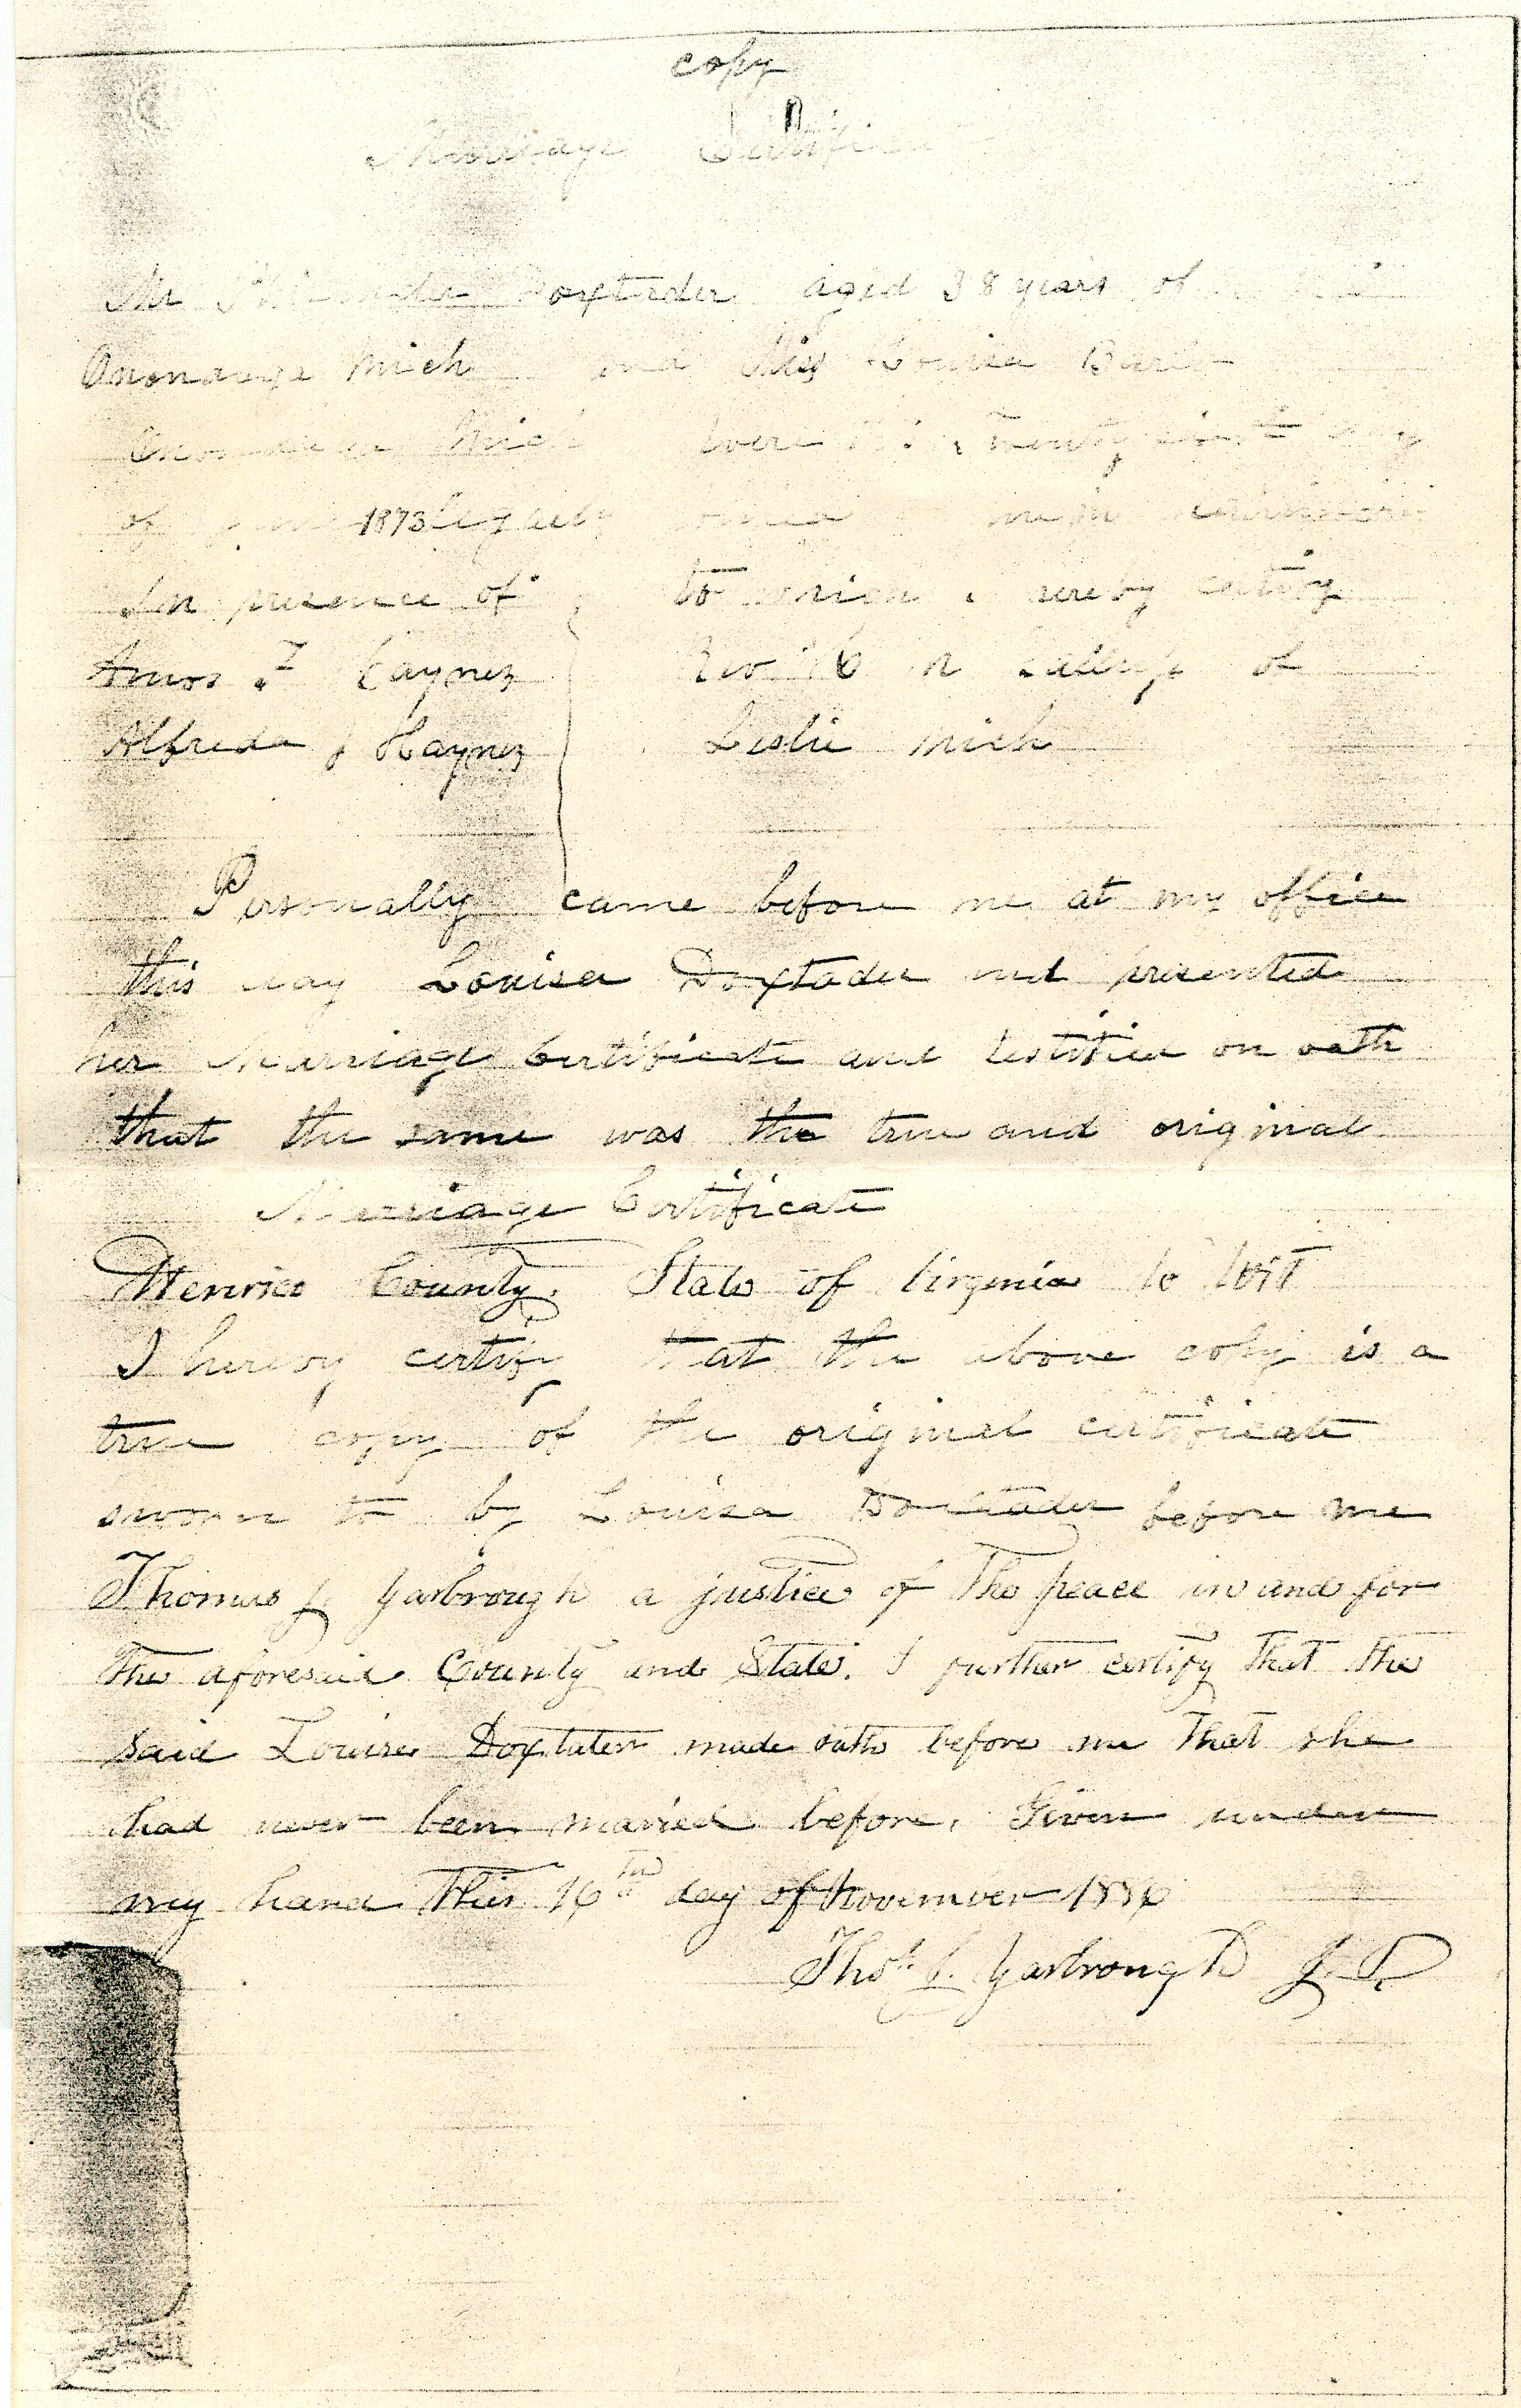 copy
Marriage Certificate
Mr Doxtader aged 38 years of
Onondaga Mich and Miss Louisa
Onondaga Mich were this Twenty day
of 1873 legally
In presence of to which I hereby certify
Amos F Haynez Rev of
Alfreda J Haynez Leslie Mich
Personally came before me at my office
this day Louisa Doxtader and presented
her Marriage Certificate and testified on oath
that the same was the true and original
Marriage Certificate
Henrico County. State of Virginia to wit
I hereby certify that the above copy is a
true copy of the original certificate
sworn to by Louisa Doxtader before me
Thomas J. Yarbrough a justice of the peace in and for
the aforesaid County and State. I further certify that the
said Louisa Doxtater made oath before me that she
had never been married before. Given under
my hand this 16th day of November 1886
Thos. J. Yarbrough J. P.